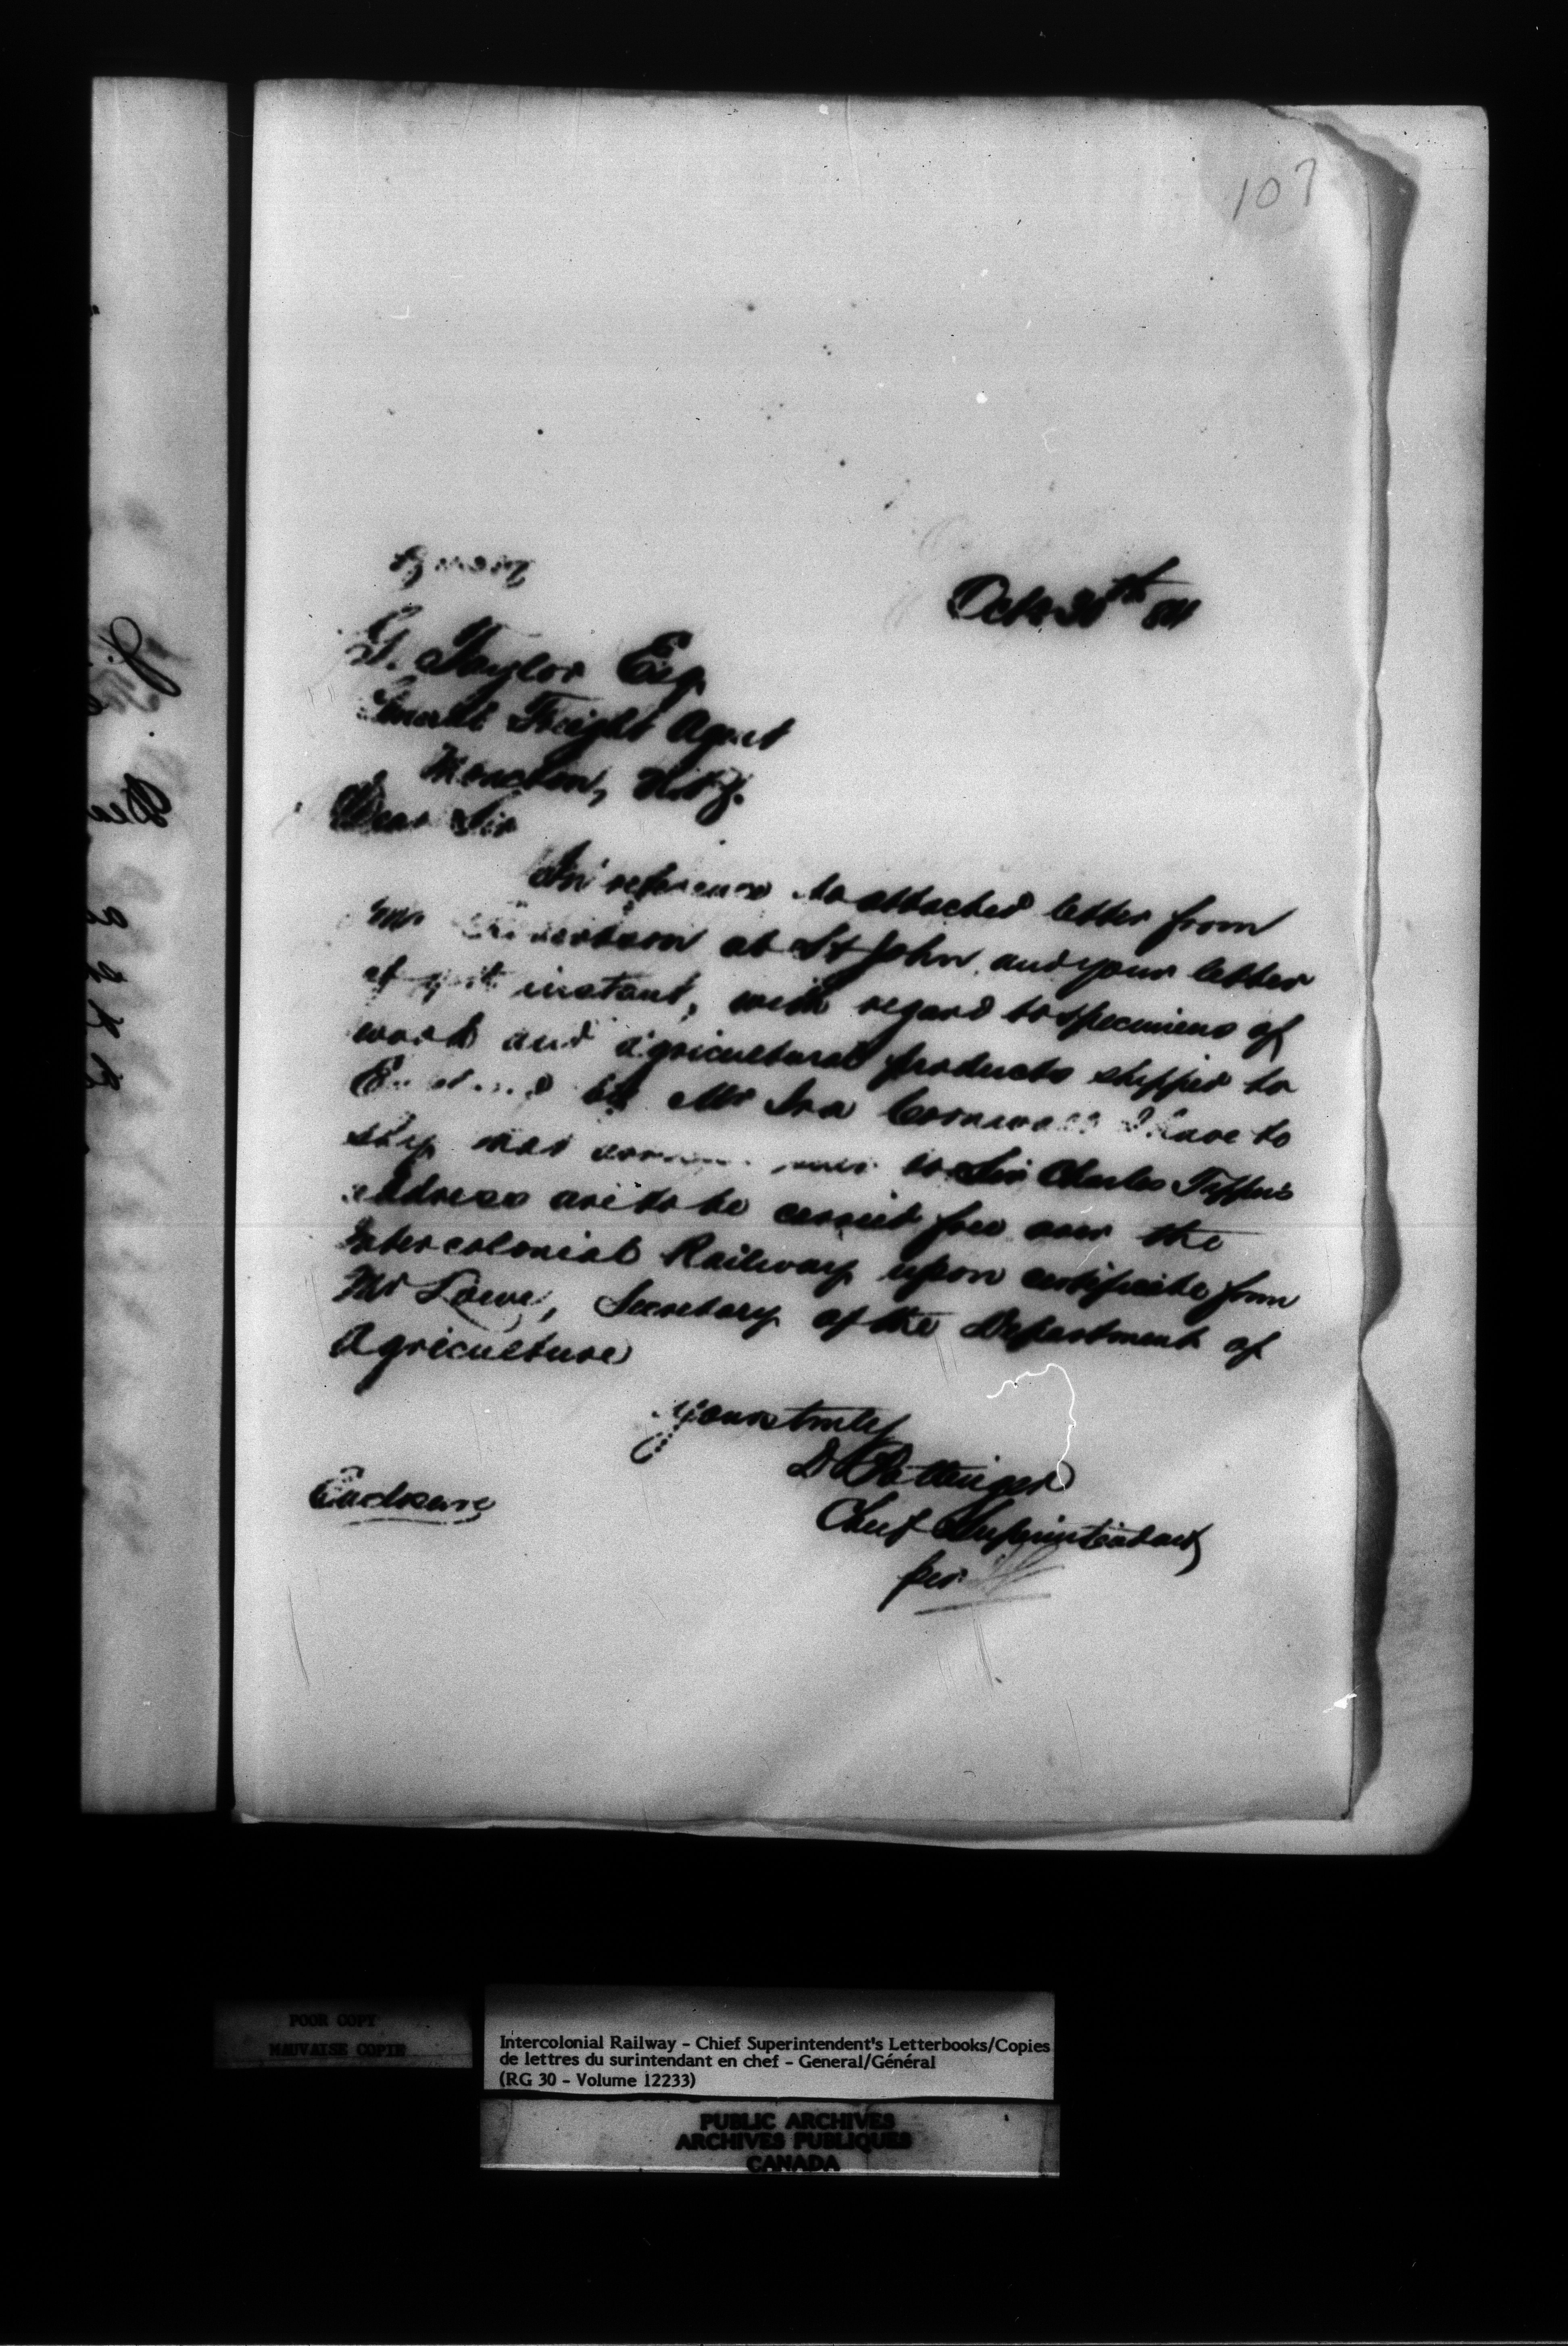 107
Octr 30th 84
G. Taylor Esq.
General Freight Agent
Moncton, N.B.
Dear Sir
In reference to attached letter from
Mr at St John, and your letter
of instant, with regard to specimens of
work and agricultural products shipped to
England by Mr Ira Cornwall I have to
say that to Sir Charles Tupper's
address are to be carried free over the
Intercolonial Railway upon certificate from
Mr Lowe, Secretary of the Department of
Agriculture
Yours truly
D Pottinger
Chief Superintendent
per
Enclosure
POOR COPY
MAUVAISE COPIE
Intercolonial Railway - Chief Superintendent's Letterbooks/Copies
de lettres du surintendant en chef - General/Général
(RG 30 - Volume 12233)
PUBLIC ARCHIVES
ARCHIVES PUBLIQUES
CANADA